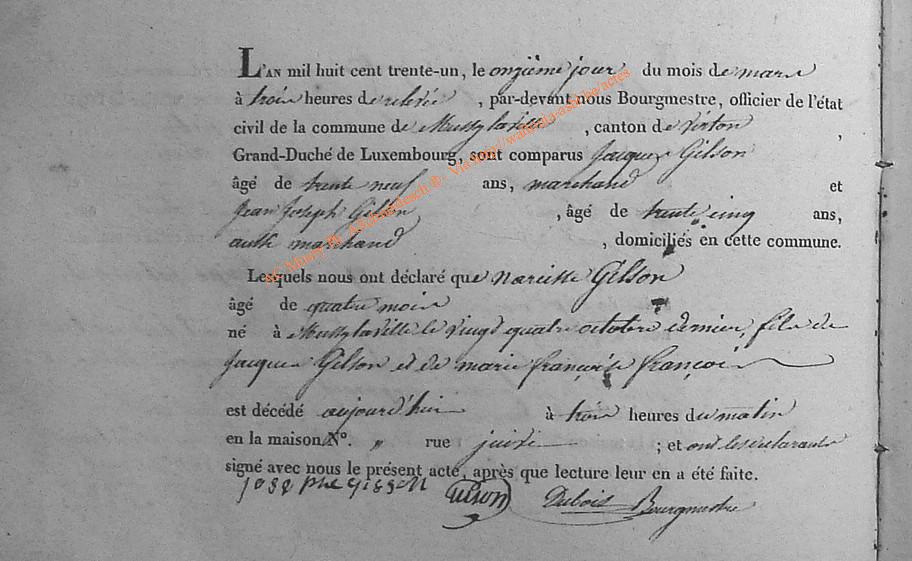 L'AN mil huit cent trente-un, le onzième jour du mois de mars
à trois heures de relevée , par-devant nous Bourgmestre, officier de l'état
civil de la commune de Mussy la ville , canton de Virton ,
Grand-Duché de Luxembourg, sont comparus Jacques Gilson
âgé de trente neuf ans, marchand et
Jean Joseph Gilson , âgé de trente cinq ans,
marchand , domiciliés en cette commune.
Lesquels nous ont déclaré que Gilson
âgé de quatre mois
né à Mussy la ville le vingt quatre octobre dernier, fils de
Jacques Gilson et de marie françoise françois
est décédé aujourd'hui à trois heures du matin
en la maison N°. " rue ; et ont les déclarants
signé avec nous le présent acte, après que lecture leur en a été faite.
Gilson Dubois Bourgmestre